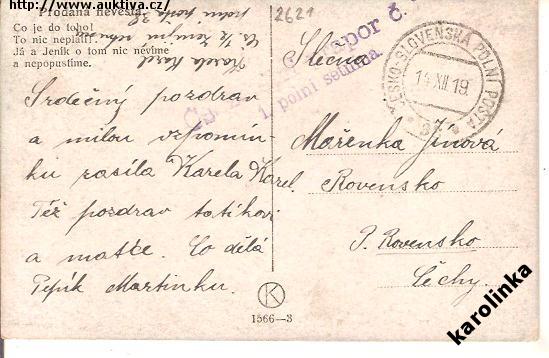 http://www.auktiva.cz/
Prodaná nevěsta.
Co je do toho!
To nic neplatí!
Já a Jeník o tom nic nevíme
a nepopustíme.
Karela Karel
polní pošta
2621
spor č.
1. polní setnina.
ČESKO-SLOVENSKÁ POLNÍ POŠTA
14.XII.19.
Srdečný pozdrav
a milou vzpomín-
ku zasílá Karela Karel.
Též pozdrav tatíkovi
a matce. Co dělá
Pepík Martinku.
Slečna
Mařenka Jínová
Rovensko
P. Rovensko
Čechy.
K
1566—3
karolinka